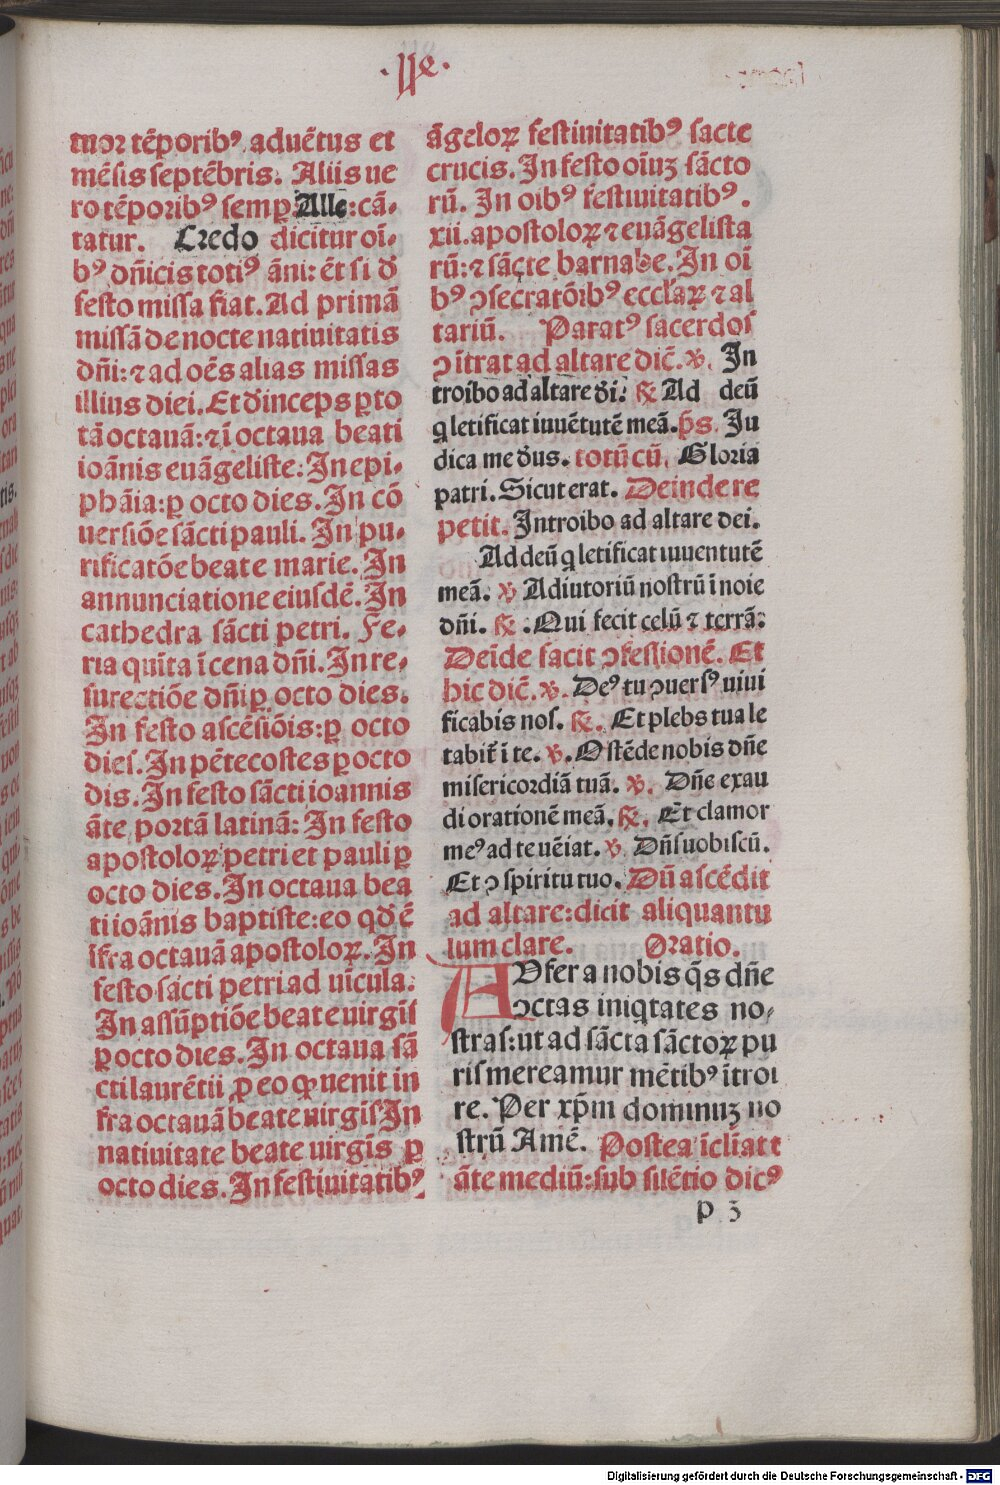 tuor tēporibꝰ aduētus et
mēsis septēbris. Aliis ue
ro tēporibꝰ semꝑ Alle:cā-
tatur. Credo dicitur oī-
bꝰ dñicis totiꝰ āni: ēt si ď
festo missa fiat. Ad primā
missā de nocte natiuitatis
dñi: ⁊ ad oēs alias missas
illius diei. Et ďinceps ꝑ to
tā octauā: ⁊ ī octaua beati
ioānis euāgeliste: In epi-
phāia: ꝑ octo dies. In cō
uersiōe sācti pauli. In pu-
rificatōe beate marie. In
annunciatione eiusdē. In
cathedra sācti petri. Fe-
ria quīta ī cena dñi. In re-
surectiōe dñi ꝑ octo dies.
In festo ascēsiōis: ꝑ octo
dies. In pētecostes ꝑ octo
dis. In festo sācti ioannis
āte portā latinā: In festo
apostoloꝝ petri et pauli ꝑ
octo dies. In octaua bea
ti ioānis baptiste: eo qďē
īfra octauā apostoloꝝ. In
festo sācti petri ad uīcula.
In assūptiōe beate uirgis
ꝑ octo dies. In octaua sā
cti laurētii ꝑ eo ꝙ uenit in
fra octauā beate uirgis In
natiuitate beate uirgīs ꝑ
octo dies. In festiuitatibꝰ
āgeloꝝ festiuitatibꝰ sācte
crucis. In festo oīuꝫ sācto
rū. In oibꝰ festiuitatibꝰ.
xii. apostoloꝝ ⁊ euāgelista
rū: ⁊ sācte barnabe. In oī
bꝰ ↄsecratōibꝰ ecclaꝝ ⁊ al
tariū. Paratꝰ sacerdos
ↄ ītrat ad altare dic̄. ℣. In
troibo ad altare ďi. ℟ Ad deū
q letificat iuuētutē meā. ps. Iu
dica me ďus. totū cū. Gloria
patri. Sicut erat. Deinde re
petit. Introibo ad altare dei.
Ad deū q letificat iuuentutē
meā. ℣ Adiutoriū nostrū ī noie
dñi. ℟. Qui fecit celū ⁊ terrā:
Deīde facit ↄfessionē. Et
hic dic̄. ℣. Deꝰ tu ↄuersꝰ uiui
ficabis nos. ℟. Et plebs tua le
tabit̄ ī te. ℣. Ostēde nobis dñe
misericordiā tuā. ℣. Dñe exau
di orationē meā. ℟. Et clamor
meꝰ ad te uēiat. ℣. Dñs uobiscū.
Et ↄ spiritu tuo. Dū ascēdit
ad altare: dicit aliquantu
lum clare. Oratio.
AUfer a nobis q̄s dñe
ↄctas iniqtates no-
stras: ut ad sācta sāctoꝝ pu
ris mereamur mētibꝰ ītroi
re. Per xp̄m dominuꝫ no
strū Amē. Postea īclīat̄
āte mediū: sub silētio dicꝰ
p 3
Digitalisierung gefördert durch die Deutsche Forschungsgemeinschaft - DFG